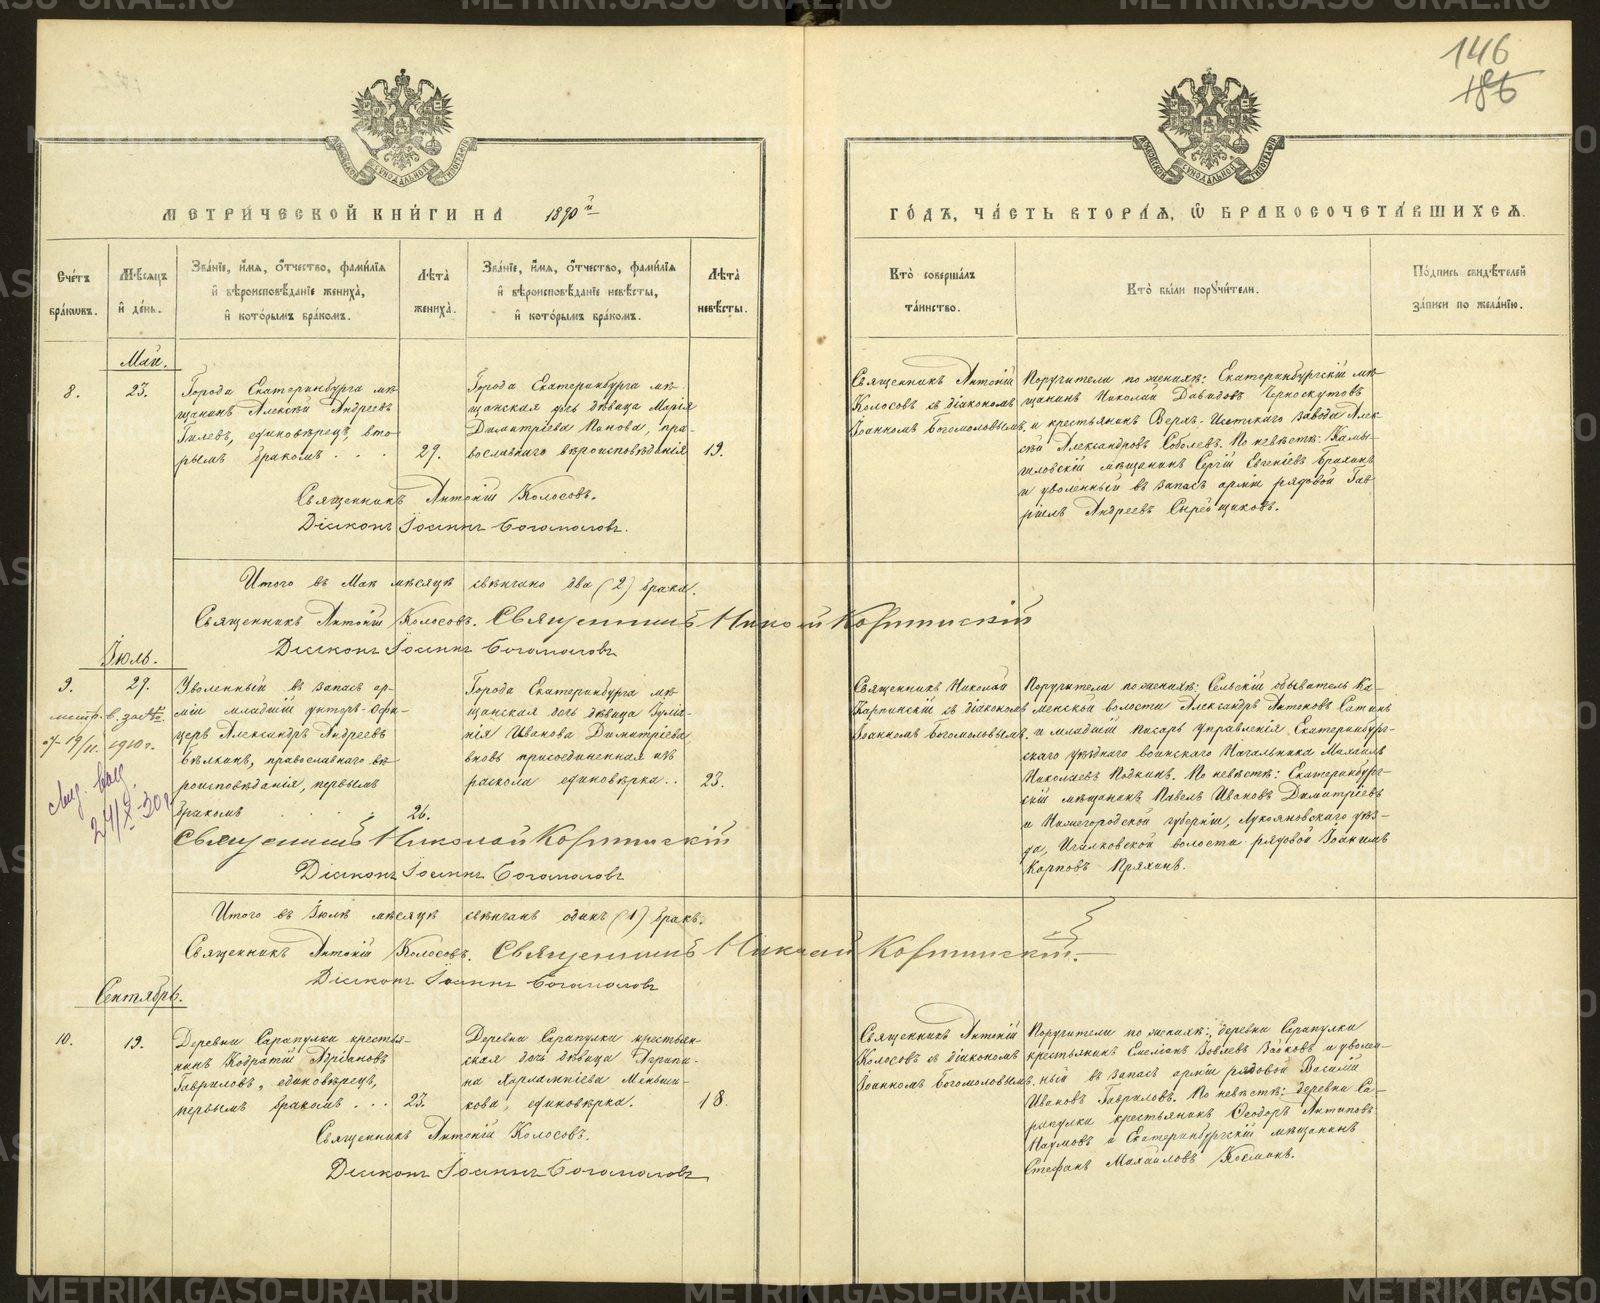 146
186
МЕТРИЧЕСКОЙ КНИГИ НА 1890й
ГОДЪ, ЧАСТЬ ВТОРАЯ, Ѡ БРАКОСОЧЕТАВШИХСЯ.
Счетъ браковъ.
Мѣсяцъ и день.
Званіе, имя, отчество, фамилія
и вѣроисповѣданіе жениха,
и которымъ бракомъ.
Лѣта жениха.
Званіе, имя, отчество, фамилія
и вѣроисповѣданіе невѣсты,
и которымъ бракомъ.
Лѣта невѣсты.
Кто совершалъ таинство.
Кто были поручители.
Подпись свидѣтелей
записи по желанію.
Май.
8.
23.
Города Екатеринбурга мѣ-
щанинъ Алексѣй Андреевъ
Гилевъ, единовѣрецъ, вто-
рымъ бракомъ . . .
29.
Города Екатеринбурга мѣ-
щанская дочь дѣвица Марія
Димитріева Панова, пра-
вославнаго вѣроисповѣданія
19.
Священникъ Антоній
Колосовъ съ діакономъ
Іоанномъ Богомоловымъ.
Поручители по женихѣ: Екатеринбургскій мѣ-
щанинъ Николай Давидовъ Черноскутовъ
и крестьянинъ Верхъ-Исетскаго завода Алек-
сѣй Александровъ Соболевъ. По невѣстѣ: Камы-
шловскій мѣщанинъ Сергій Евгеніевъ
и уволенный въ запасъ арміи рядовой Гав-
ріилъ Андреевъ Сырейщиковъ.
Священникъ Антоній Колосовъ.
Діаконъ Іоаннъ Богомоловъ.
Итого въ Маѣ мѣсяцѣ свѣнчано два (2) брака.
Священникъ Антоній Колосовъ. Священникъ Николай Карпинскій
Діаконъ Іоаннъ Богомоловъ
Іюль.
9.
29.
Уволенный въ запасъ ар-
міи младшій унтеръ-офи-
церъ Александръ Андреевъ
Бѣлкинъ, православнаго вѣ-
роисповѣданія, первымъ
бракомъ
26.
Города Екатеринбурга мѣ-
щанская дочь дѣвица Іулiа-
нія Иванова Димитріева,
вновь присоединенная изъ
раскола единовѣрка . .
23.
Священникъ Николай
Карпинскій съ діакономъ
Іоанномъ Богомоловымъ.
Поручители по женихѣ: Сельскій обыватель Ка-
менской волости Александръ Антоновъ Сатинъ
и младшій писарь управленія Екатеринбург-
скаго уѣзднаго воинскаго Начальника Михаилъ
Николаевъ Подкинъ. По невѣстѣ: Екатеринбург-
скій мѣщанинъ Павелъ Ивановъ Димитріевъ
и Нижегородской губерніи, Лукояновскаго уѣз-
да, волости рядовой Іоакимъ
Карповъ Пряхинъ.
1910 г.
24/X-30 г
Священникъ Николай Карпинскій
Діаконъ Іоаннъ Богомоловъ
Итого въ Іюлѣ мѣсяцѣ свѣнчанъ одинъ (1) бракъ.
Священникъ Антоній Колосовъ. Священникъ Николай Карпинскій.
Діаконъ Іоаннъ Богомоловъ
Сентябрь.
10.
19.
Деревни Сарапулки крестья-
нинъ Кодратій Адріановъ
Гавриловъ, единовѣрецъ,
первымъ бракомъ . . .
23.
Деревни Сарапулки крестьян-
ская дочь дѣвица Агрипи-
на Харлампіева Меньши-
кова, единовѣрка.
18.
Священникъ Антоній
Колосовъ съ діакономъ
Іоанномъ Богомоловымъ.
Поручители по женихѣ: деревни Сарапулки
крестьянинъ Емеліанъ Іовлевъ и уволен-
ный въ запасъ арміи рядовой Василій
Ивановъ Гавриловъ. По невѣстѣ: деревни Са-
рапулки крестьянинъ Ѳеодоръ Антиповъ
Наумовъ и Екатеринбургскій мѣщанинъ
Стефанъ Михайловъ
Священникъ Антоній Колосовъ.
Діаконъ Іоаннъ Богомоловъ
METRIKI.GASO-URAL.RU